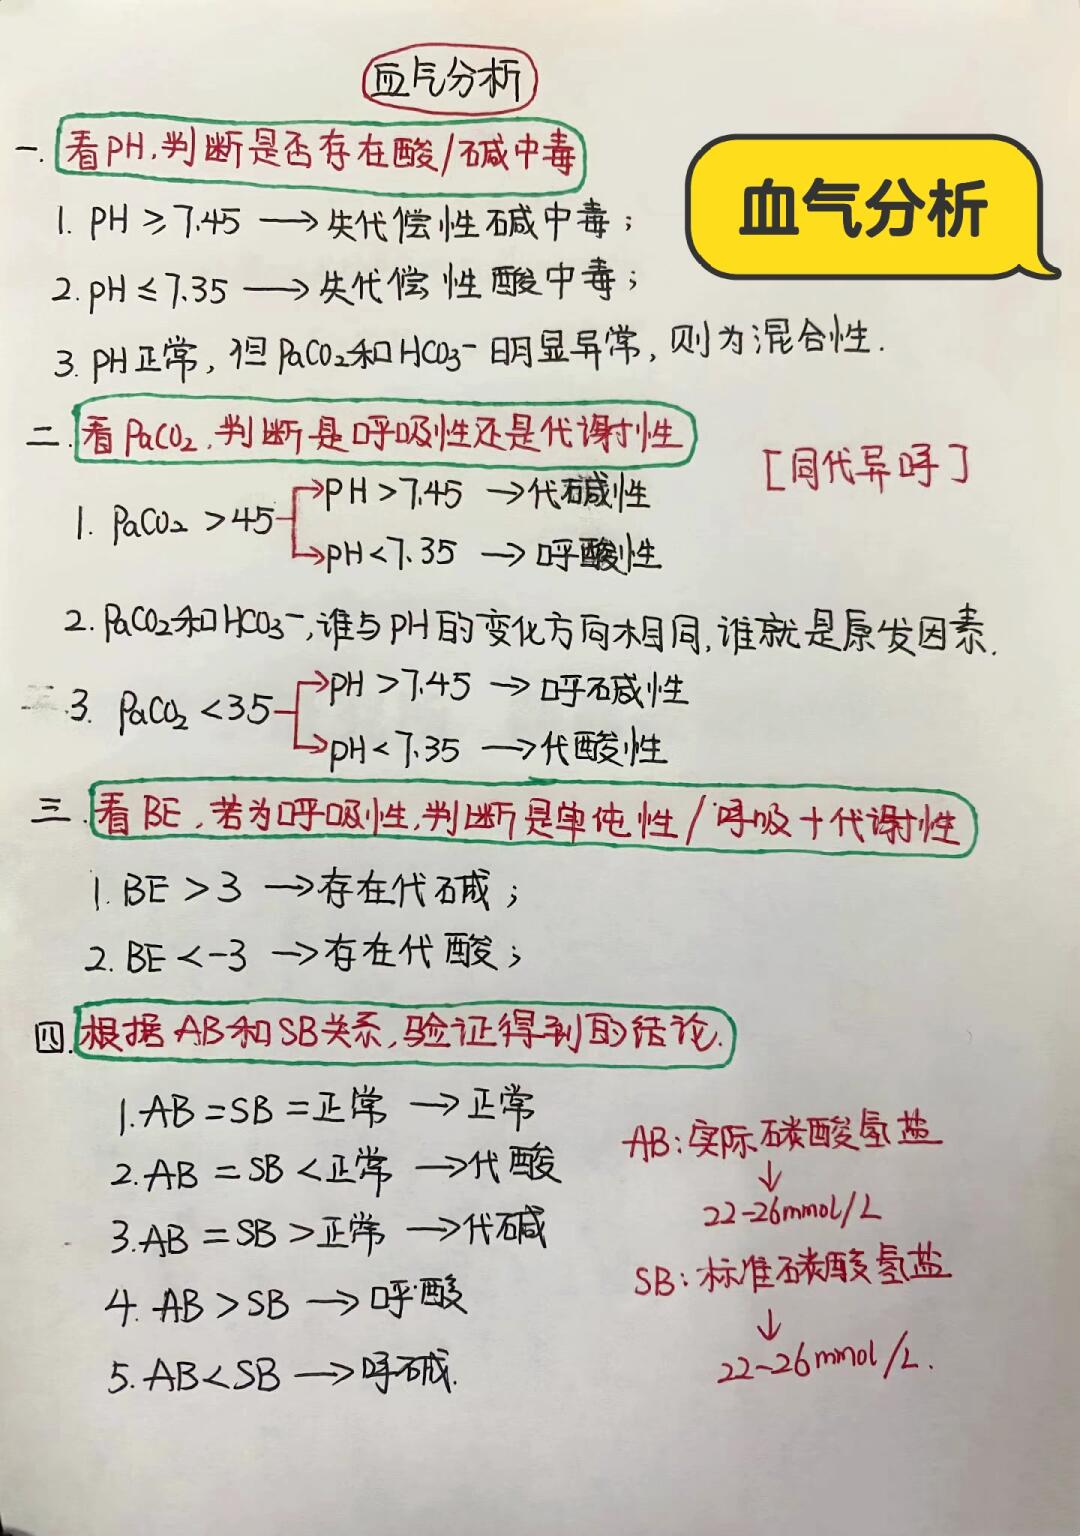 血气分析
血气分析
一. 看PH,判断是否存在酸/碱中毒
1. PH ≥ 7.45 → 失代偿性碱中毒;
2. PH ≤ 7.35 → 失代偿性酸中毒;
3. PH正常, 但PaCO₂和HCO₃⁻明显异常, 则为混合性.
二. 看PaCO₂, 判断是呼吸性还是代谢性
[同代异呼]
1. PaCO₂ > 45
PH > 7.45 → 代碱性
PH < 7.35 → 呼酸性
2. PaCO₂和HCO₃⁻, 谁与PH的变化方向相同, 谁就是原发因素.
3. PaCO₂ < 35
PH > 7.45 → 呼碱性
PH < 7.35 → 代酸性
三. 看BE, 若为呼吸性, 判断是单纯性/呼吸+代谢性
1. BE > 3 → 存在代碱;
2. BE < -3 → 存在代酸;
四. 根据AB和SB关系, 验证得到的结论.
1. AB = SB = 正常 → 正常
2. AB = SB < 正常 → 代酸
3. AB = SB > 正常 → 代碱
4. AB > SB → 呼酸
5. AB < SB → 呼碱.
AB: 实际碳酸氢盐
↓
22-26mmol/L
SB: 标准碳酸氢盐
↓
22-26mmol/L.